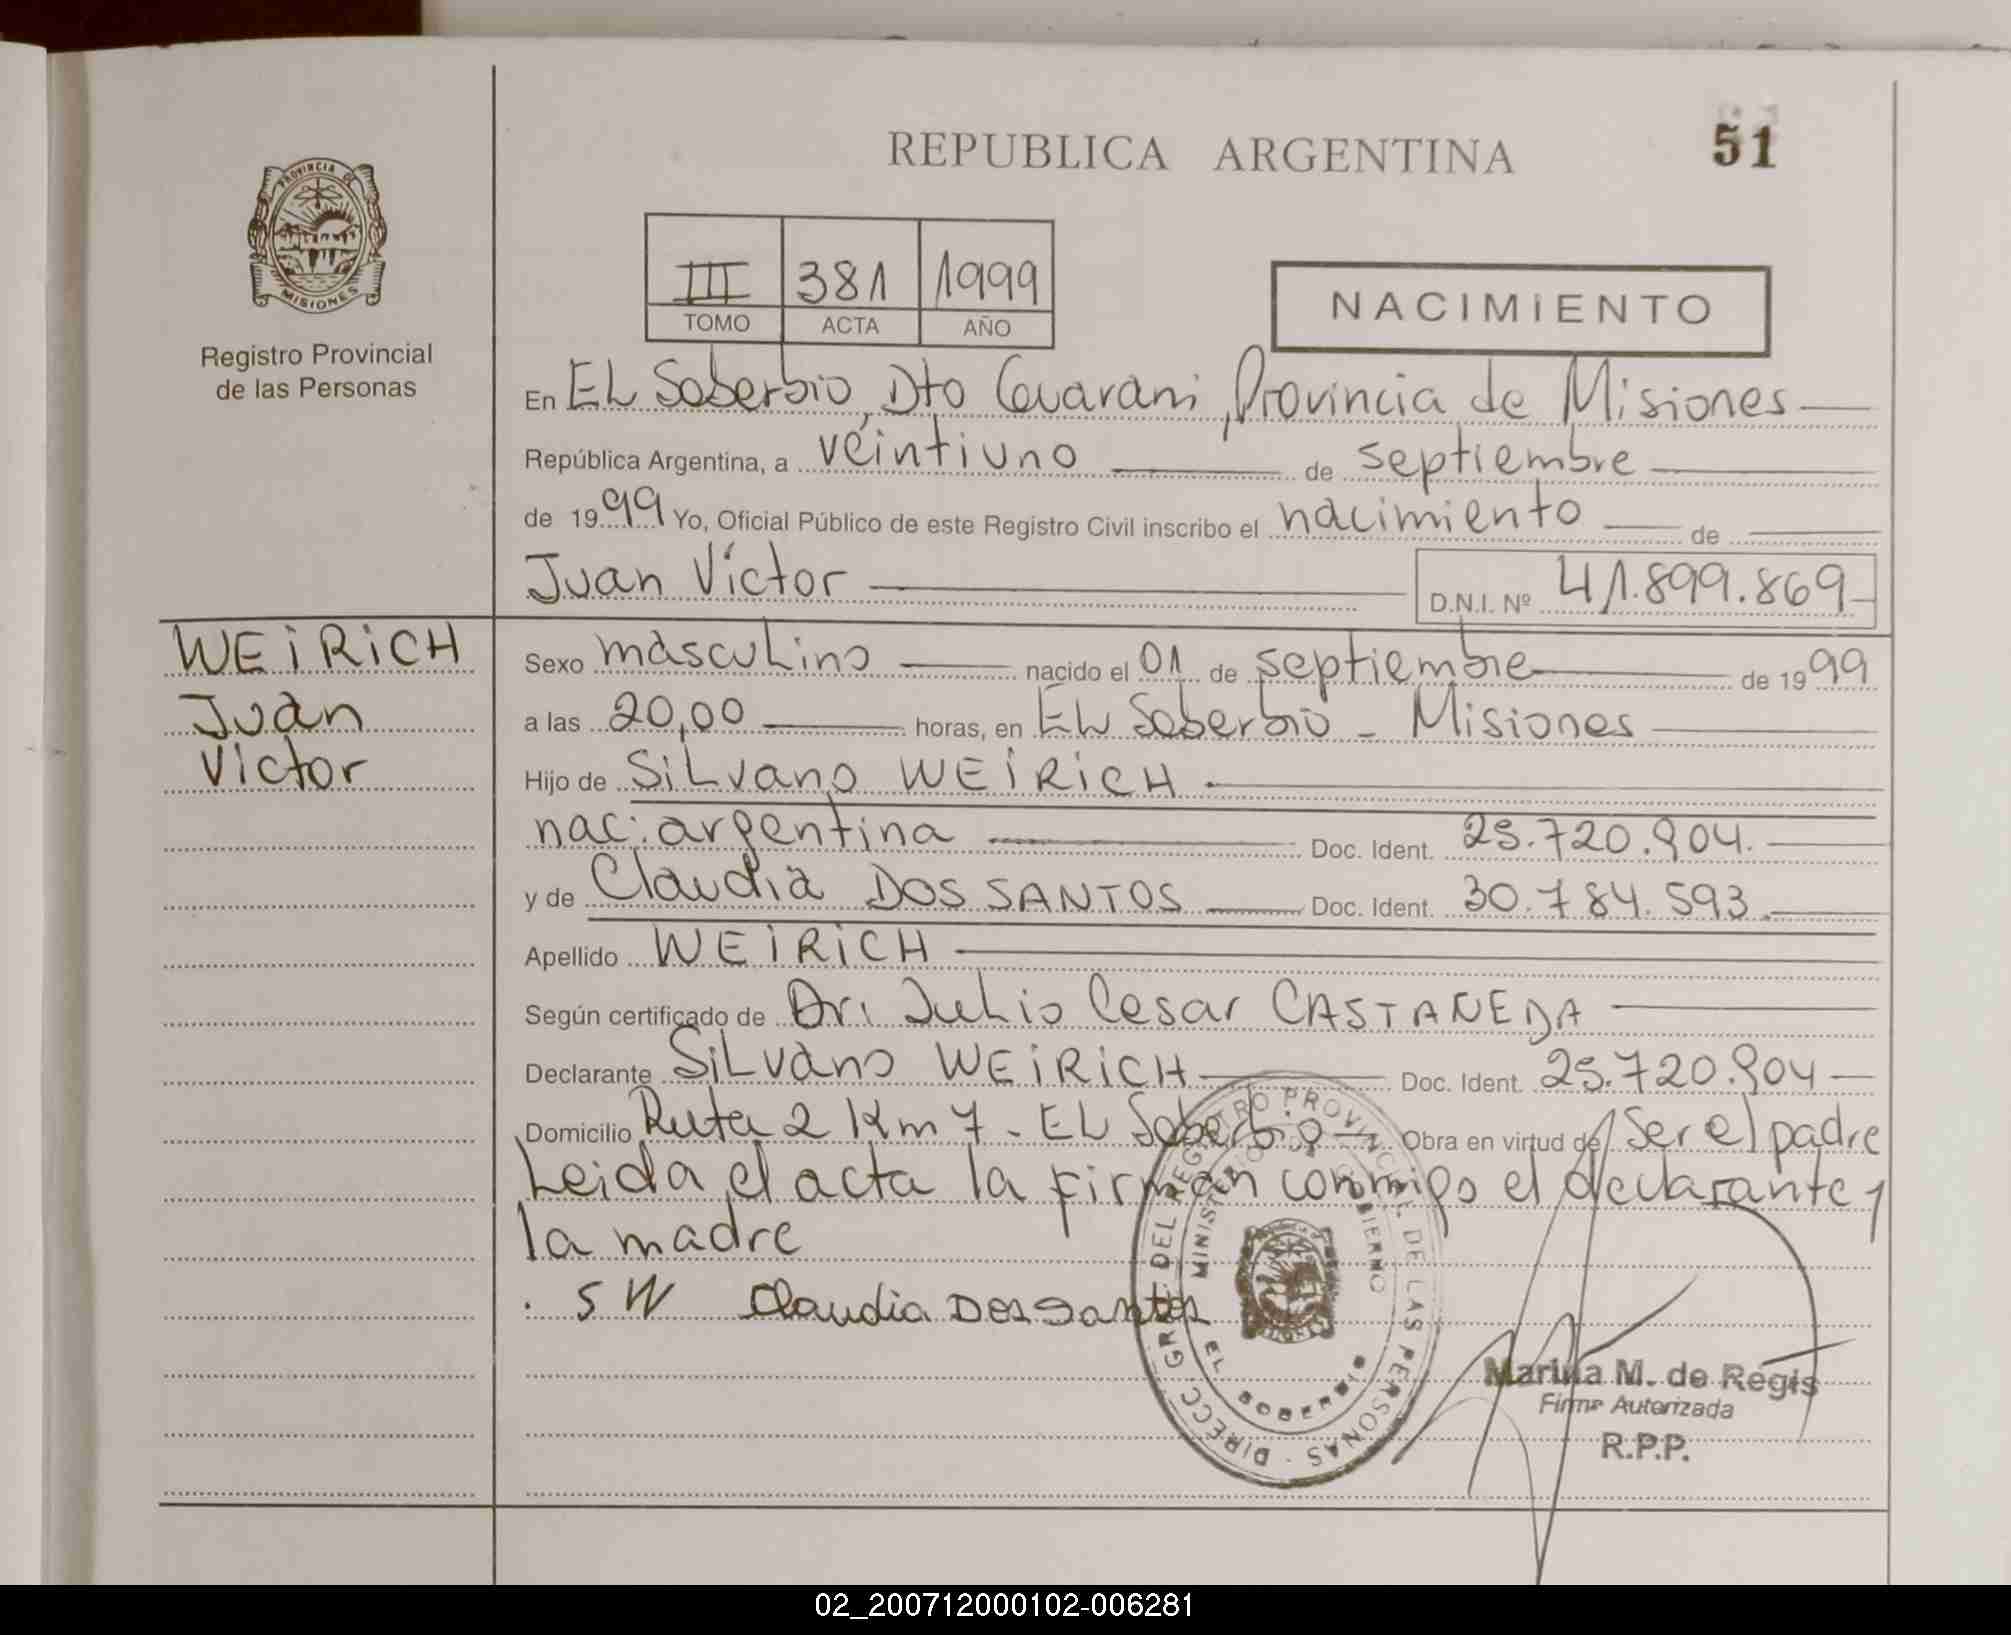 REPUBLICA ARGENTINA
51
PROVINCIA DE
MISIONES
Registro Provincial
de las Personas
III 381 1999
TOMO ACTA AÑO
NACIMIENTO
En EL Soberbio, Dto Guarani, Provincia de Misiones
República Argentina, a veintiuno de septiembre
de 1999 Yo, Oficial Público de este Registro Civil inscribo el nacimiento de
Juan Victor D.N.I. Nº 41.899.869
WEIRICH
Juan
Victor
Sexo masculino nacido el 01 de septiembre de 1999
a las 20,00 horas, en EL Soberbio - Misiones
Hijo de SiLvano WEIRICH
nac: argentina Doc. Ident. 25.720.904.
y de Claudia DOS SANTOS Doc. Ident. 30.784.593.
Apellido WEIRICH
Según certificado de Dr. Julio Cesar CASTAÑEDA
Declarante SiLvano WEIRICH Doc. Ident. 25.720.904
Domicilio Ruta 2 Km 7 - EL Soberbio Obra en virtud de Ser el padre
Leida el acta la firman conmigo el declarante y
la madre
. S W Claudia Dos Santos
DIRECC. GRAL. DEL REGISTRO PROVINCIAL DE LAS PERSONAS
MINISTERIO DE GOBIERNO
EL SOBERBIO
Marina M. de Regis
Firma Autorizada
R.P.P.
02_200712000102-006281